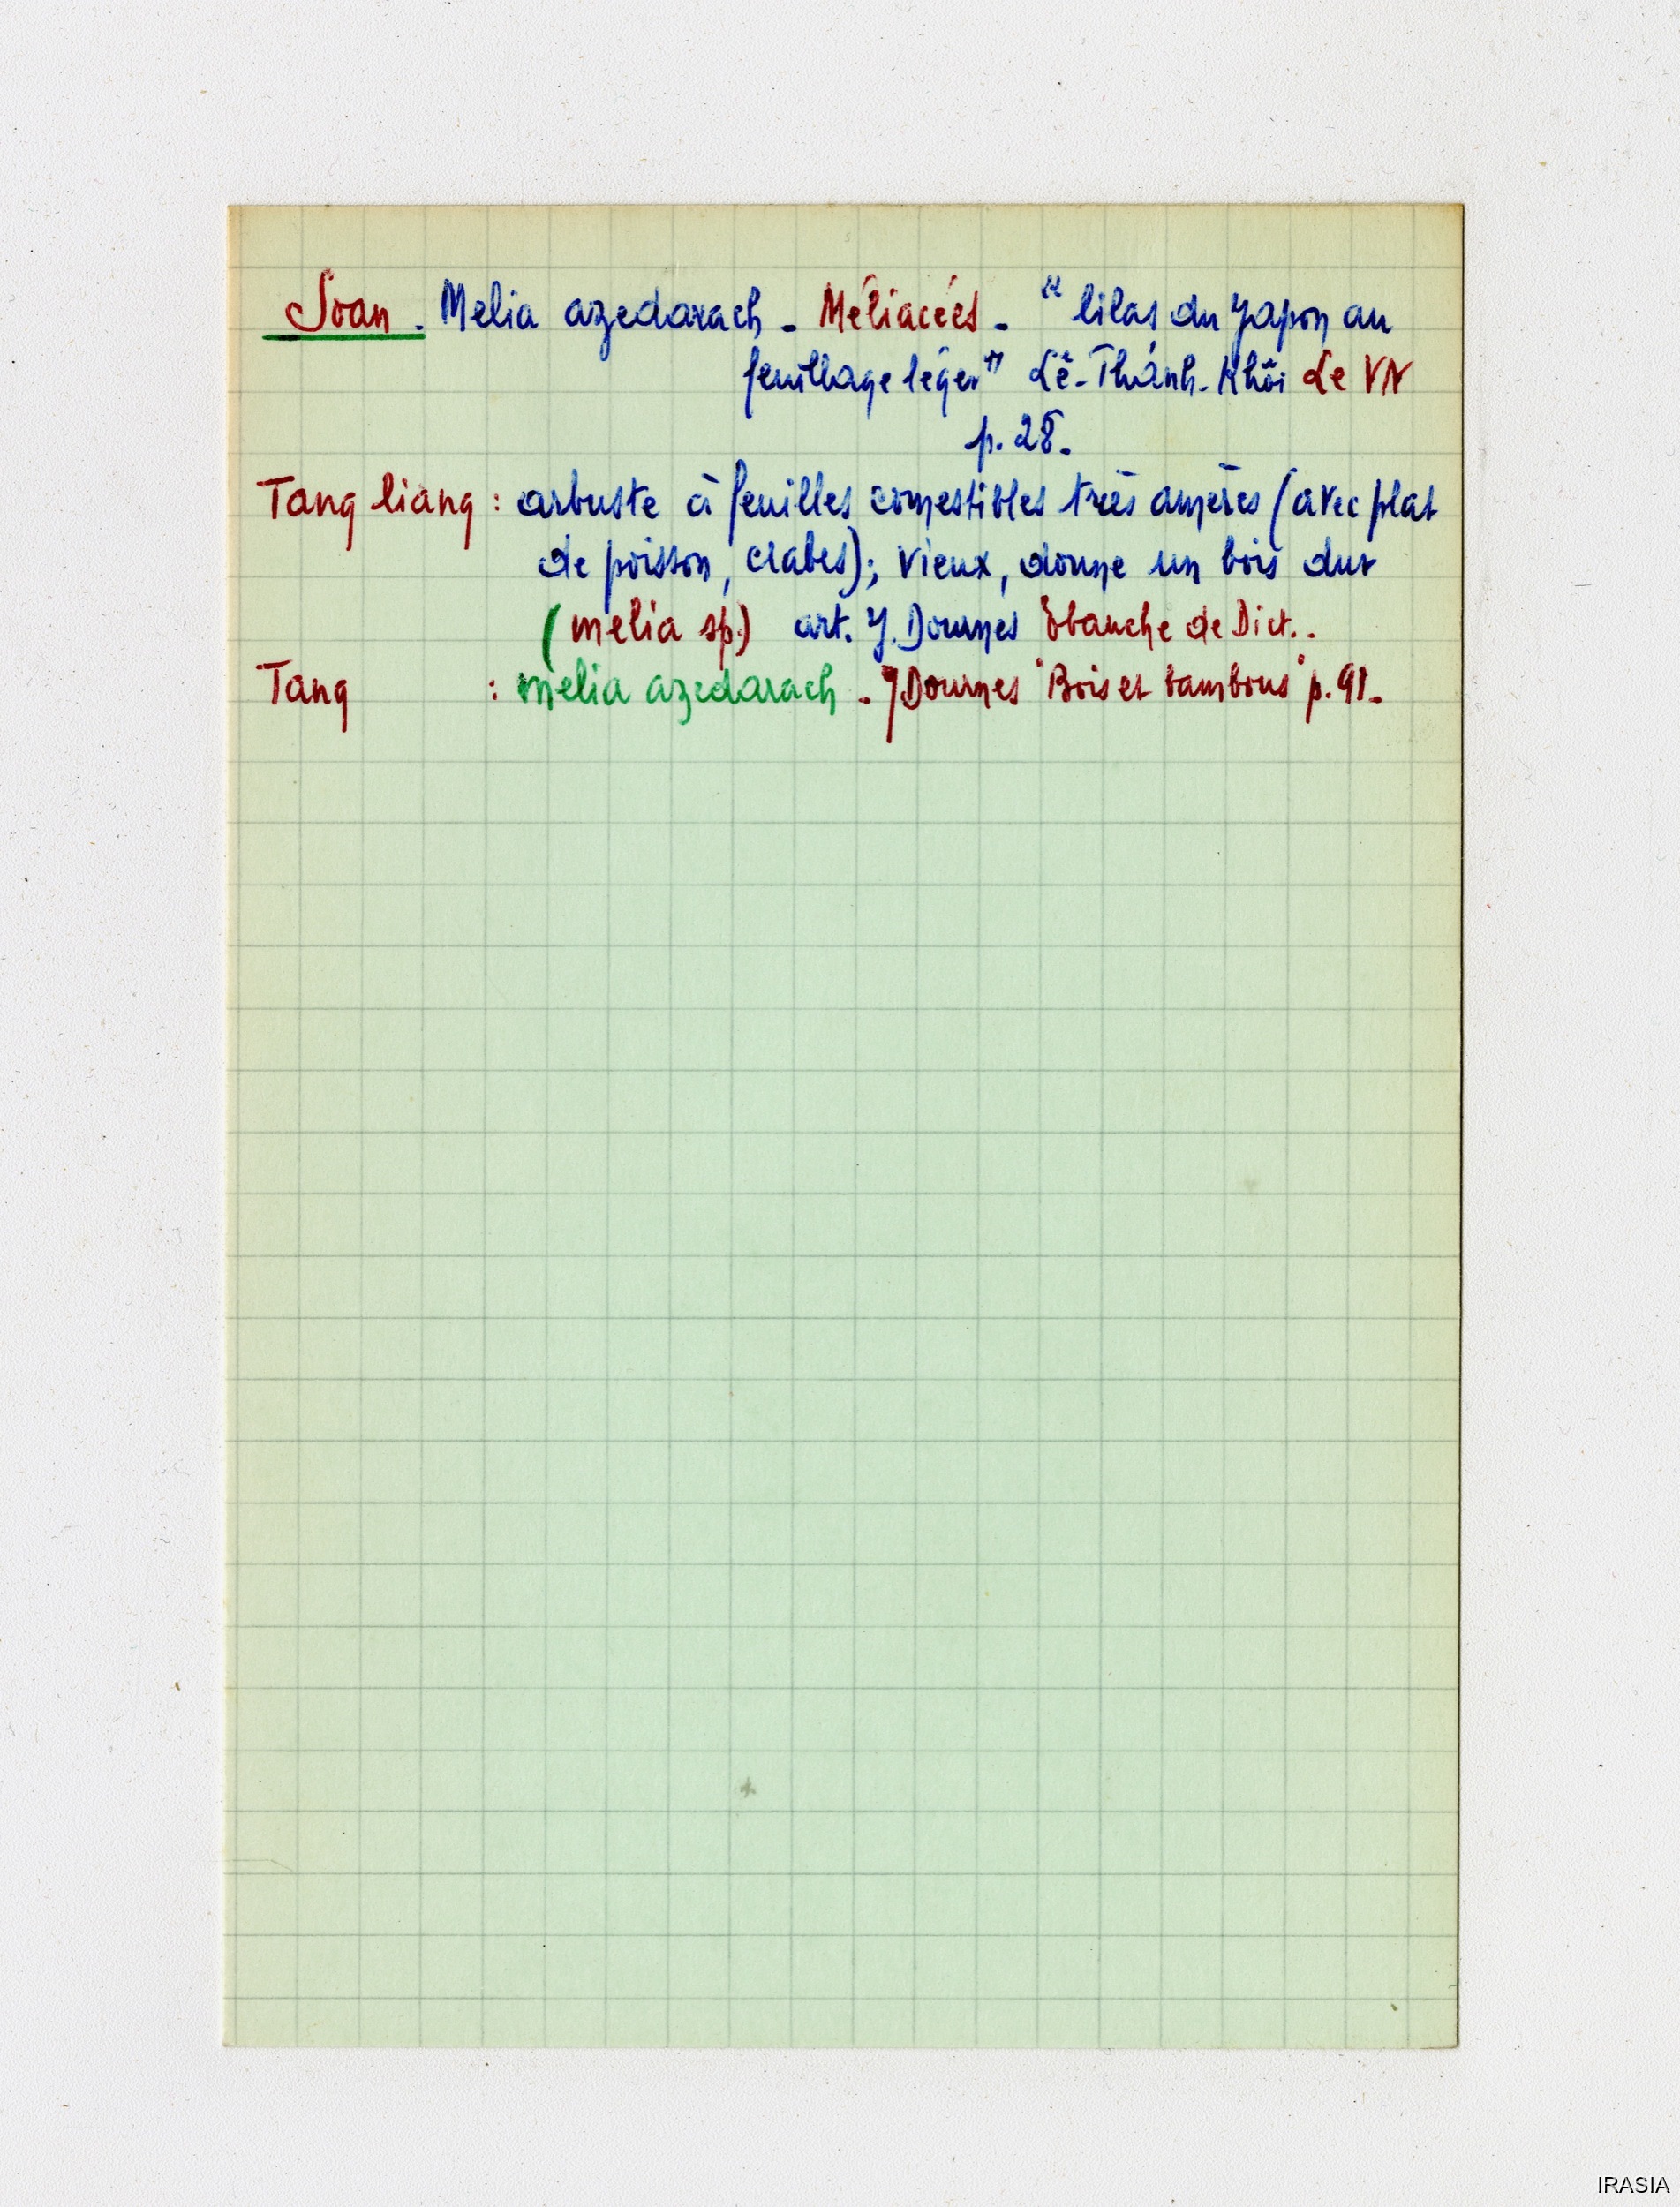 Soan. Melia azedarach - Méliacées - "lilas du Japon au
feuillage léger" Lê-Thánh-Khôi Le VN
p. 28-
Tang liang : arbuste à feuilles comestibles très amères (avec plat
de poisson, crabes); vieux, donne un bois dur
(melia sp.) art. J. Dournes Ebauche de Dict..
Tang : melia azedarach - J Dournes "Bois et bambous" p. 91-
IRASIA